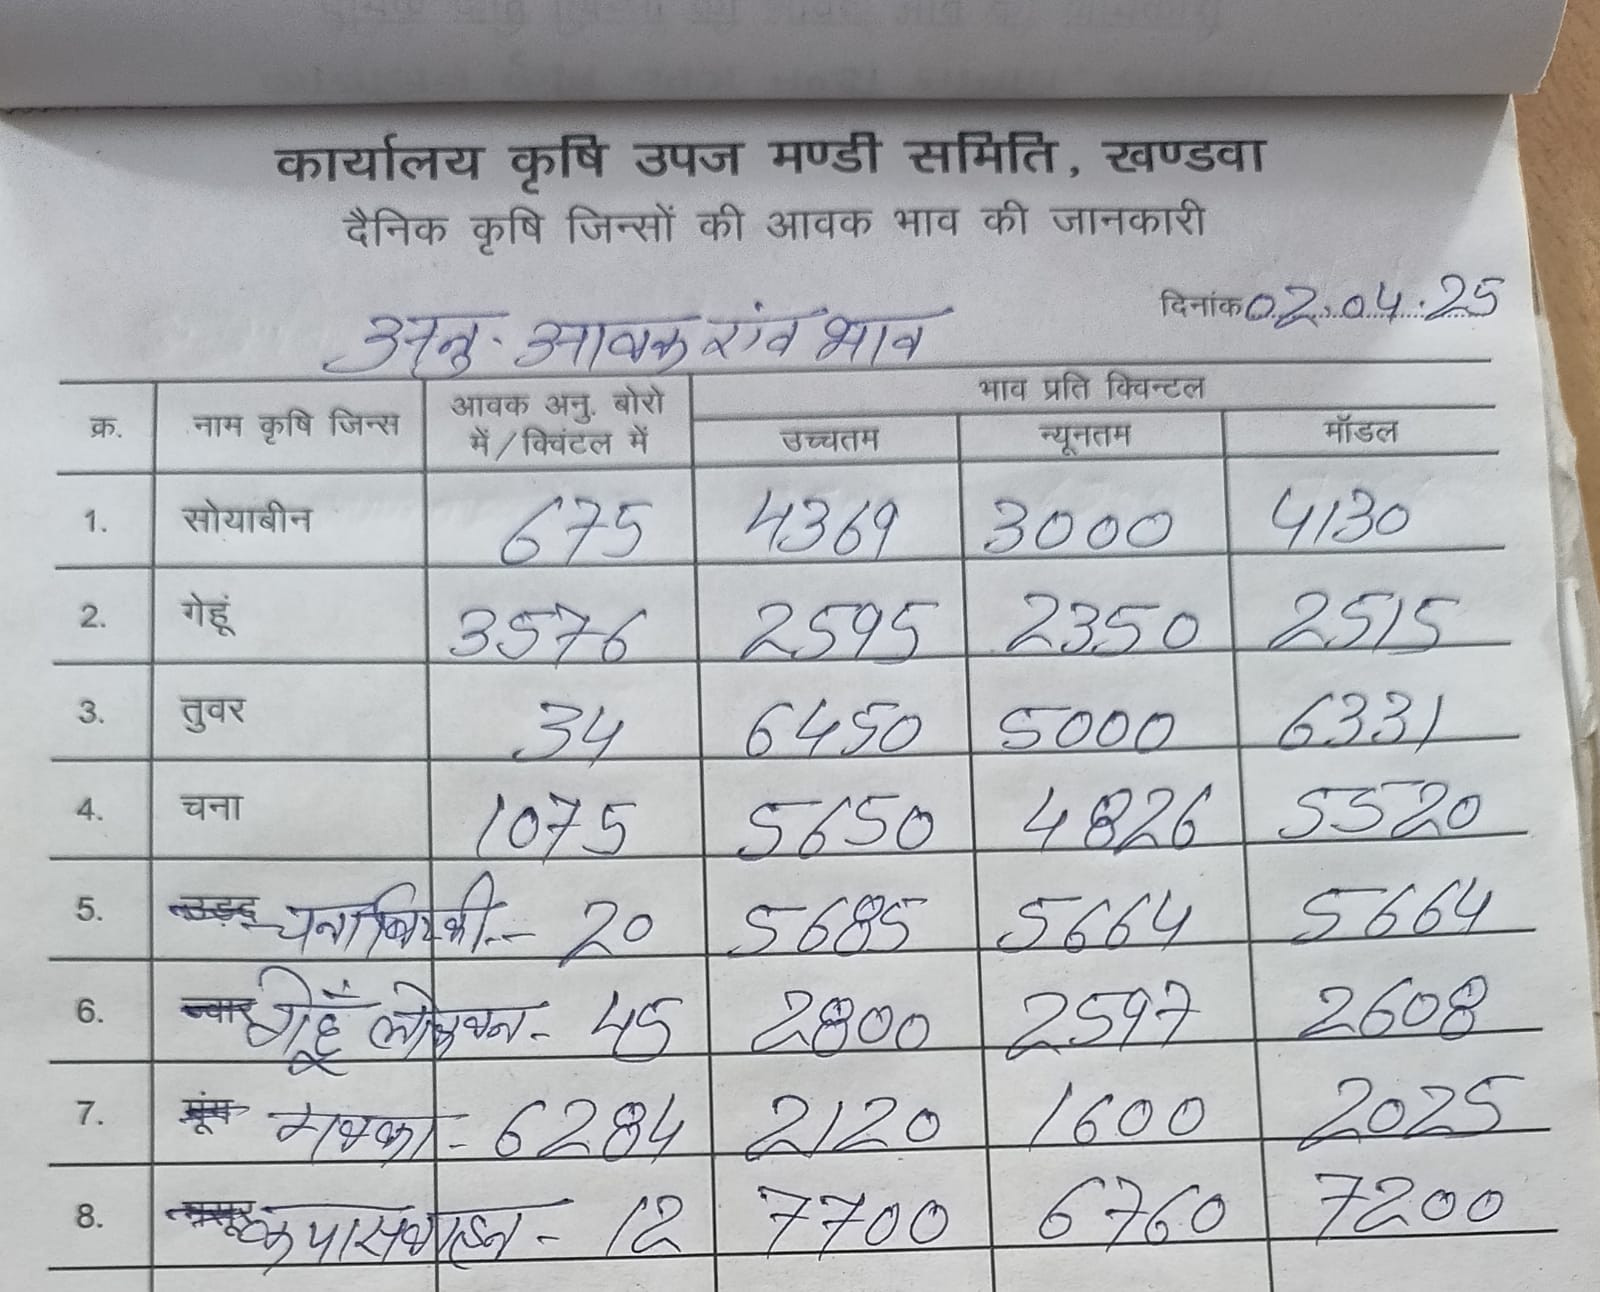 कार्यालय कृषि उपज मण्डी समिति, खण्डवा
दैनिक कृषि जिन्सों की आवक भाव की जानकारी
दिनांक 02.04.25
अनु. आवक एंव भाव
क्र. नाम कृषि जिन्स आवक अनु. बोरो में/क्विंटल में भाव प्रति क्विन्टल
उच्चतम न्यूनतम मॉडल
1. सोयाबीन 675 4369 3000 4130
2. गेहूं 3576 2595 2350 2515
3. तुवर 34 6450 5000 6331
4. चना 1075 5650 4826 5520
5. उड़द चना बिटकी - 20 5685 5664 5664
6. ज्वार गेहूँ लोकवन - 45 2800 2597 2608
7. मूंग मक्का - 6284 2120 1600 2025
8. मसूर कपास वाहन - 12 7700 6760 7200